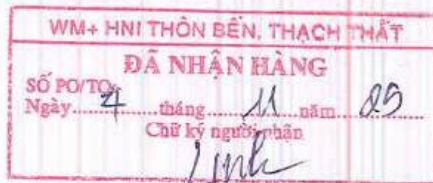 WM+ HNI THÔN BẾN, THẠCH THẤT
ĐÃ NHẬN HÀNG
SỐ PO/TO:
Ngày 4 tháng 11 năm 25
Chữ ký người nhận
Linh